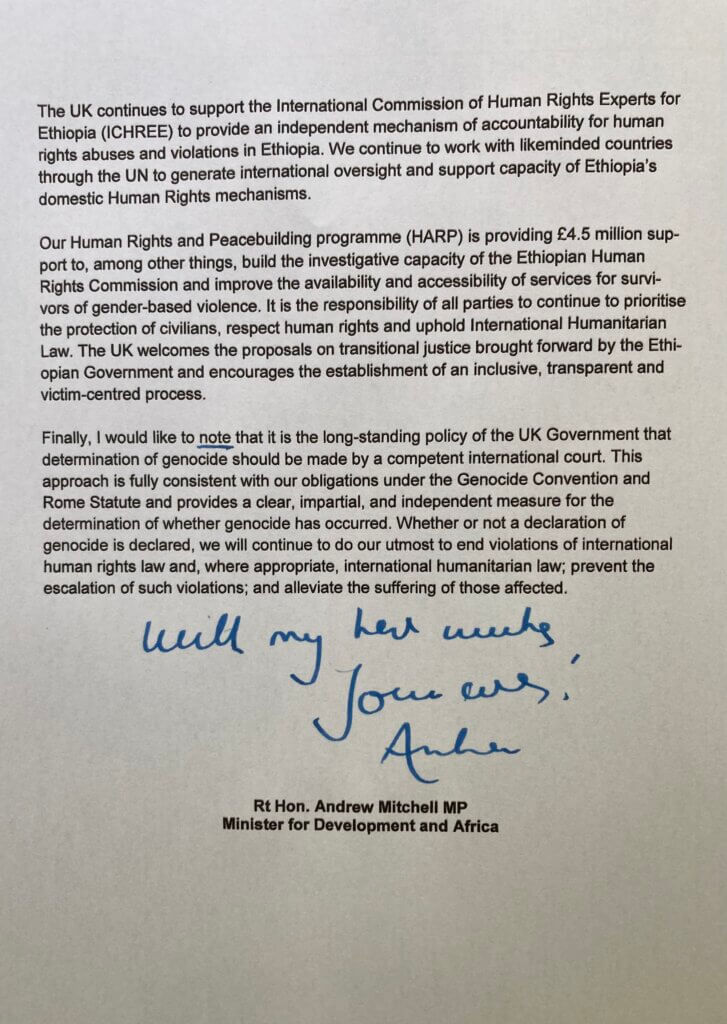 The UK continues to support the International Commission of Human Rights Experts for
Ethiopia (ICHREE) to provide an independent mechanism of accountability for human
rights abuses and violations in Ethiopia. We continue to work with likeminded countries
through the UN to generate international oversight and support capacity of Ethiopia's
domestic Human Rights mechanisms.
Our Human Rights and Peacebuilding programme (HARP) is providing £4.5 million sup-
port to, among other things, build the investigative capacity of the Ethiopian Human
Rights Commission and improve the availability and accessibility of services for survi-
vors of gender-based violence. It is the responsibility of all parties to continue to prioritise
the protection of civilians, respect human rights and uphold International Humanitarian
Law. The UK welcomes the proposals on transitional justice brought forward by the Ethi-
opian Government and encourages the establishment of an inclusive, transparent and
victim-centred process.
Finally, I would like to note that it is the long-standing policy of the UK Government that
determination of genocide should be made by a competent international court. This
approach is fully consistent with our obligations under the Genocide Convention and
Rome Statute and provides a clear, impartial, and independent measure for the
determination of whether genocide has occurred. Whether or not a declaration of
genocide is declared, we will continue to do our utmost to end violations of international
human rights law and, where appropriate, international humanitarian law; prevent the
escalation of such violations; and alleviate the suffering of those affected.
With my best wishes
Yours ever,
Andrew
Rt Hon. Andrew Mitchell MP
Minister for Development and Africa